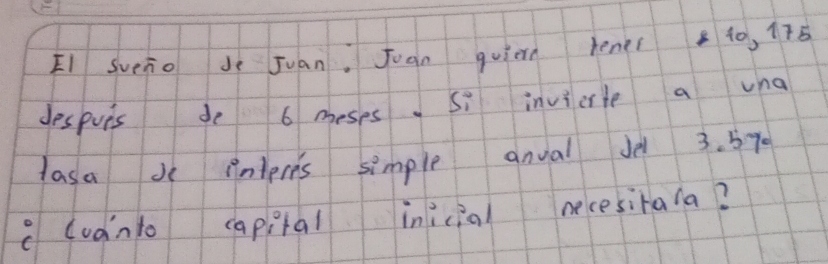 El sueño de Juan. Juan quiere tener $ 10,175
después de 6 meses. Si invierte a una
tasa de interés simple anual del 3.5%
¿Cuánto capital inicial necesitara?